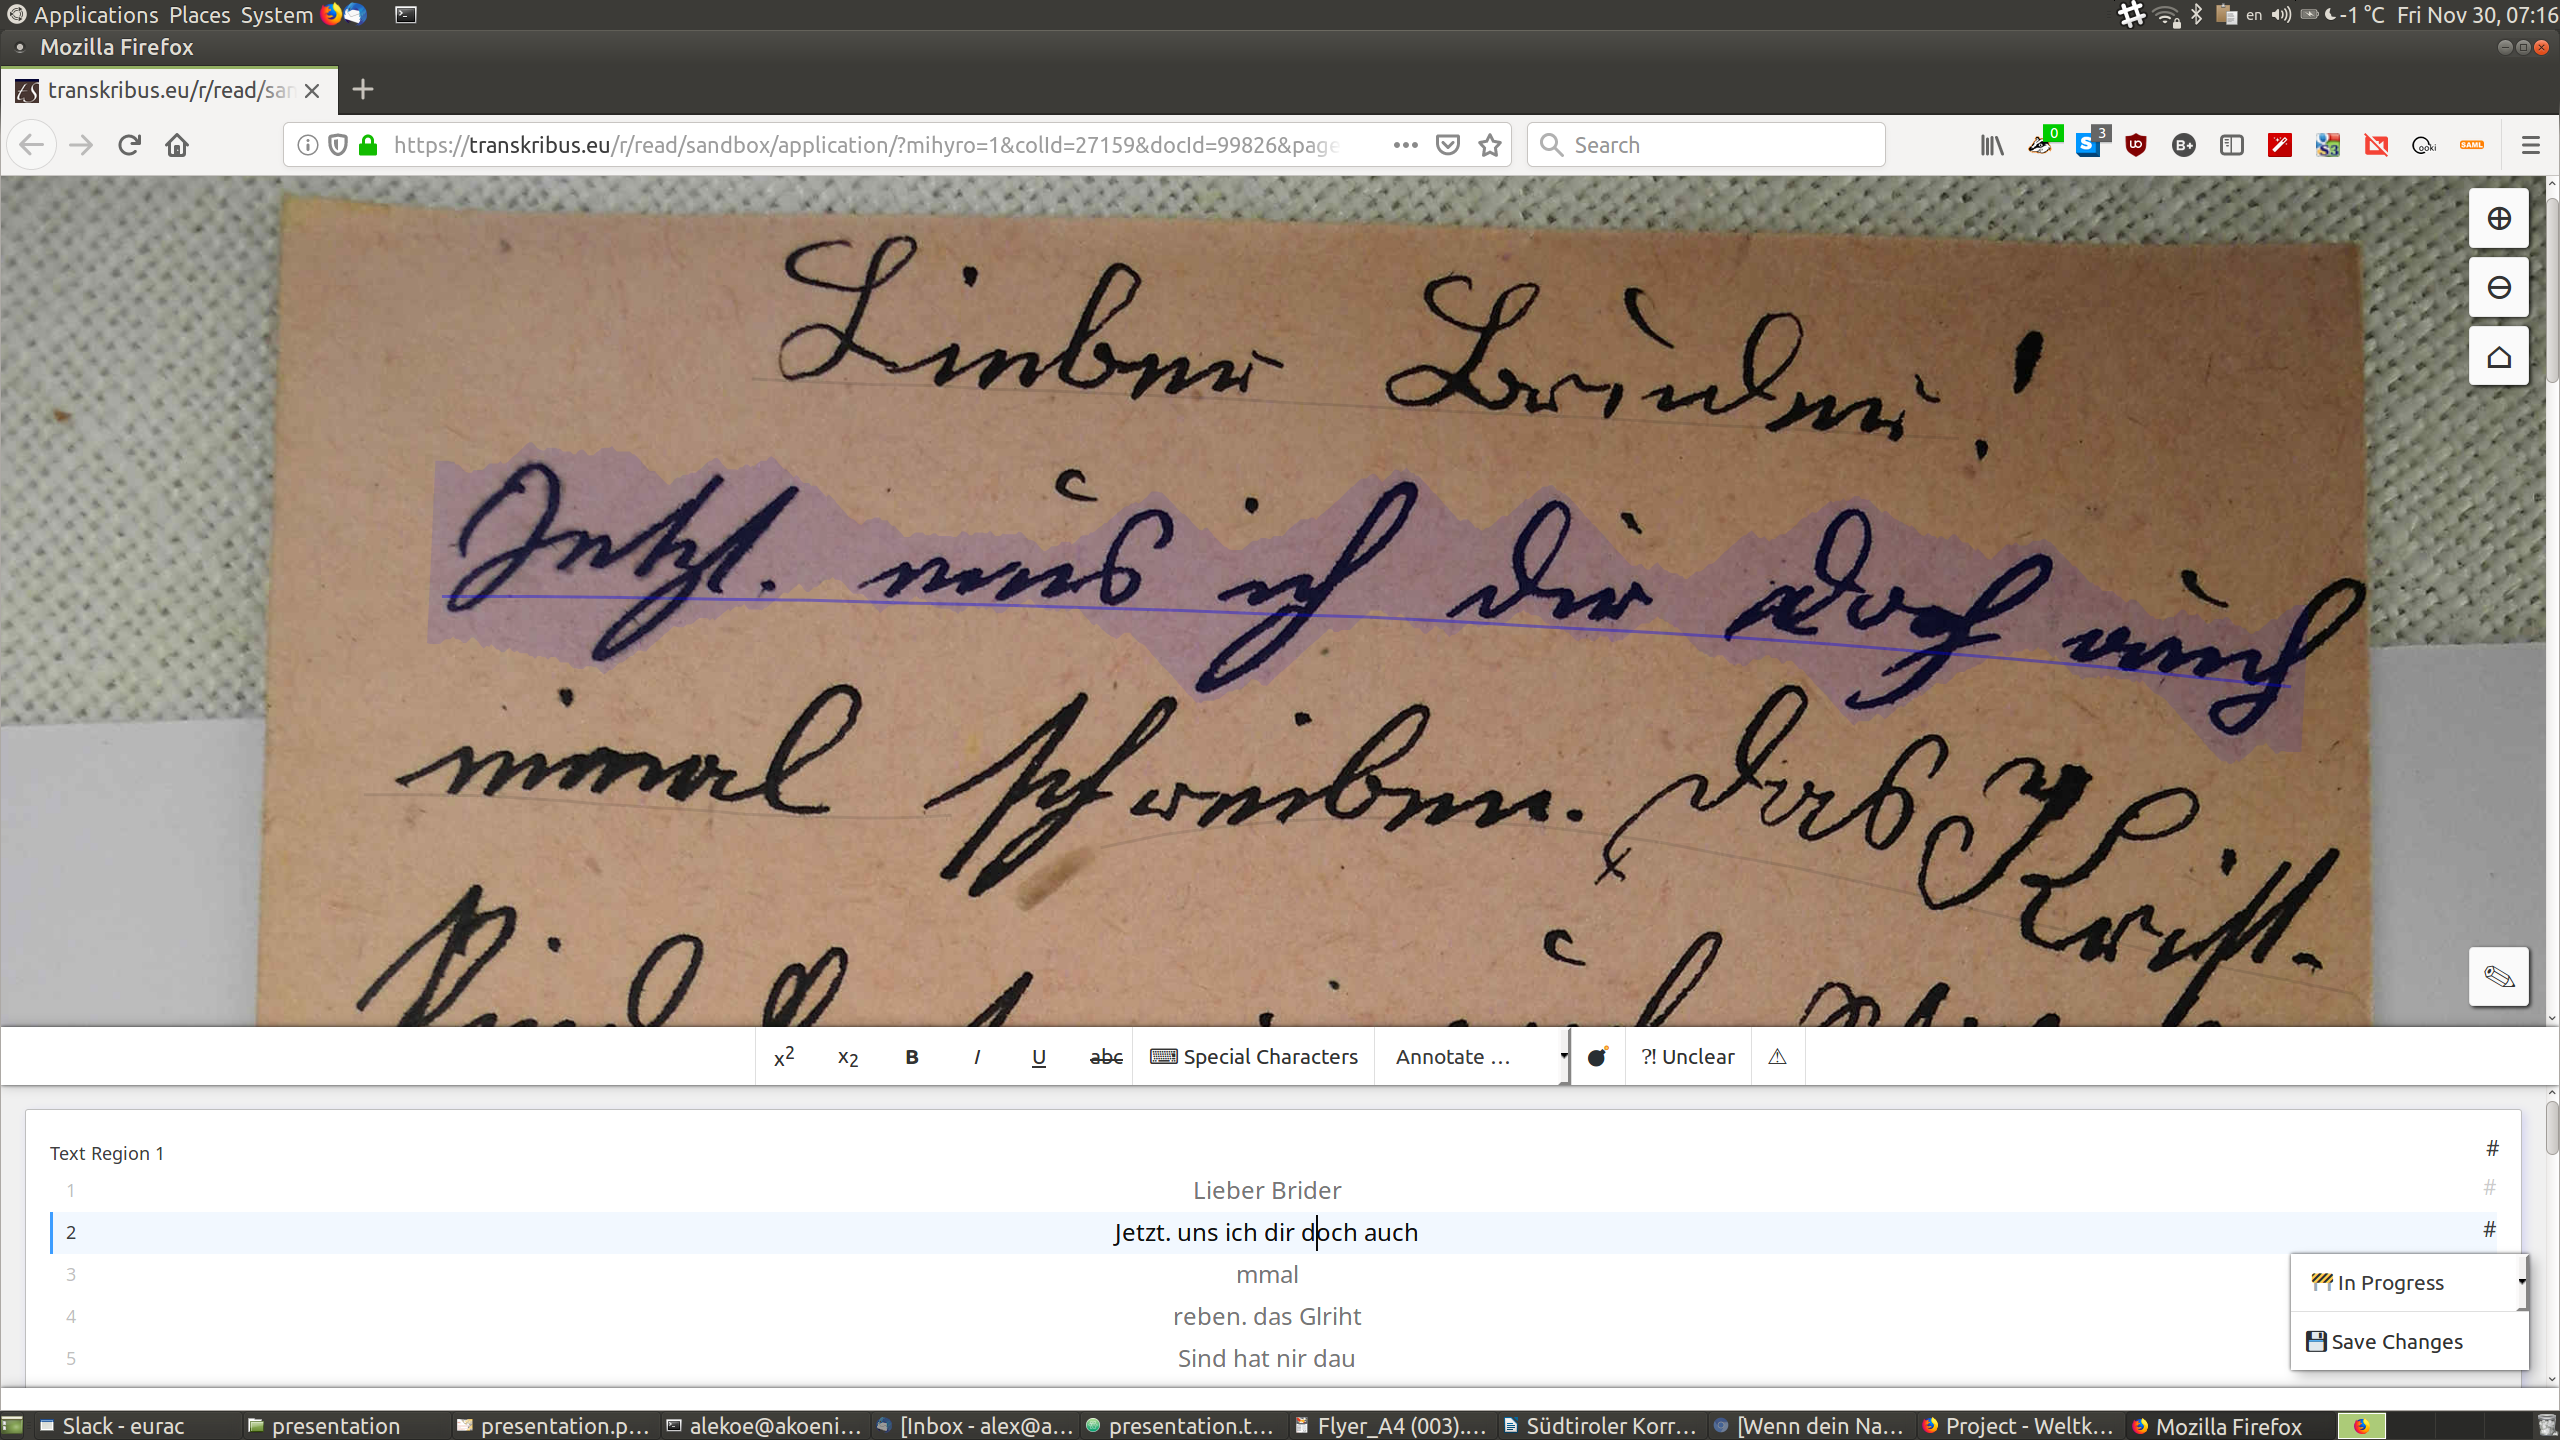 Applications Places System en -1 °C Fri Nov 30, 07:16
Mozilla Firefox
transkribus.eu/r/read/san
https://transkribus.eu/r/read/sandbox/application/?mihyro=1&colId=27159&docId=99826&page Search 0 3 B+ S3 ooki SAML
Lieber Bruder!
Jetzt. mus ich dir doch auch
eimal schreiben. das Krist-
x² x₂ B I U abc Special Characters Annotate ... ?! Unclear
Text Region 1 #
1 Lieber Brider #
2 Jetzt. uns ich dir doch auch #
3 mmal
4 reben. das Glriht
5 Sind hat nir dau
In Progress
Save Changes
Slack - eurac presentation presentation.p... alekoe@akoeni... [Inbox - alex@a... presentation.t... Flyer_A4 (003).... Südtiroler Korr... [Wenn dein Na... Project - Weltk... Mozilla Firefox